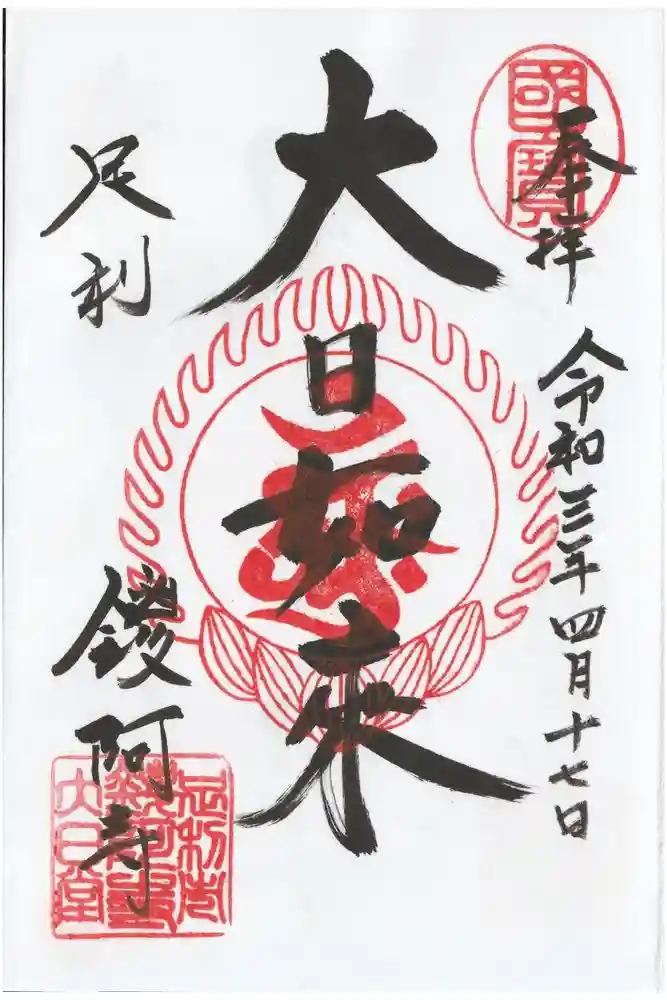 奉拝
令和三年四月十七日
國寳
大日如来
足利
鑁阿寺
足利市
鑁阿寺
大日堂